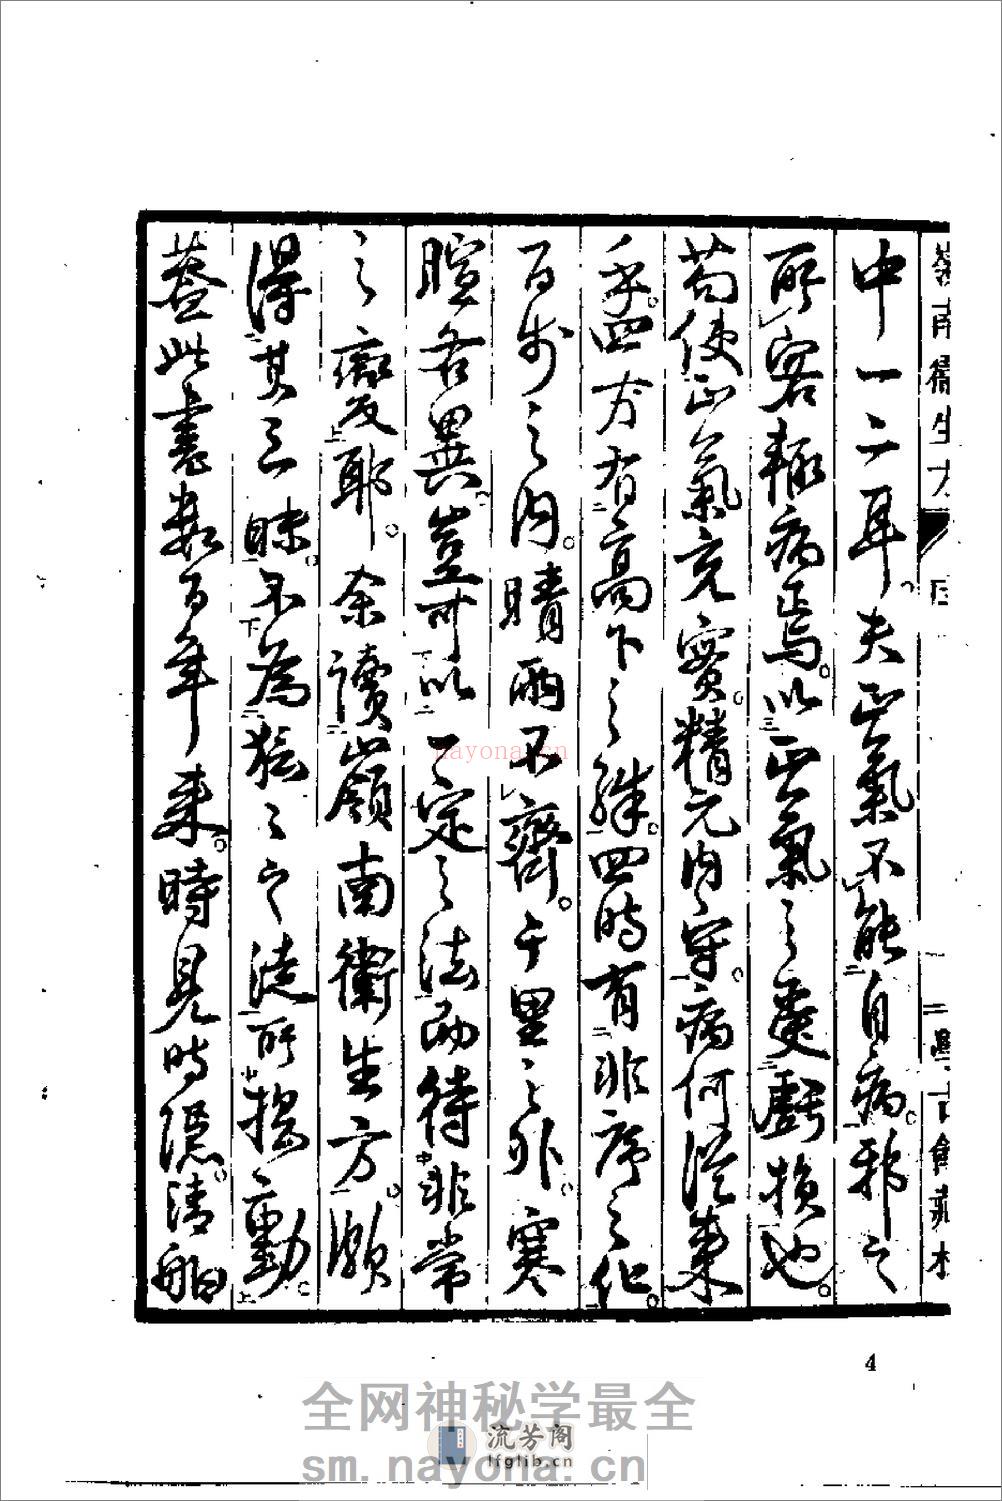 中一二耳。夫正氣不能自病。邪之
所客輙病焉。以正氣之衰虧損也。
苟使正氣充實。精元内守。病何從來
乎。四方有高下之殊。四時有非序之化。
百步之内。晴雨不齊。千里之外。寒
暄各異。豈可以一定之法而待非常
之變耶。余讀嶺南衛生方。頗
得其三昧。不為狂之之徒所揺動。
蓋此書數百年来。時見時隠。清舶
嶺南衛生方
4
nayona.cn
全网神秘学最全
流芳阁
lfglib.cn
sm.nayona.cn